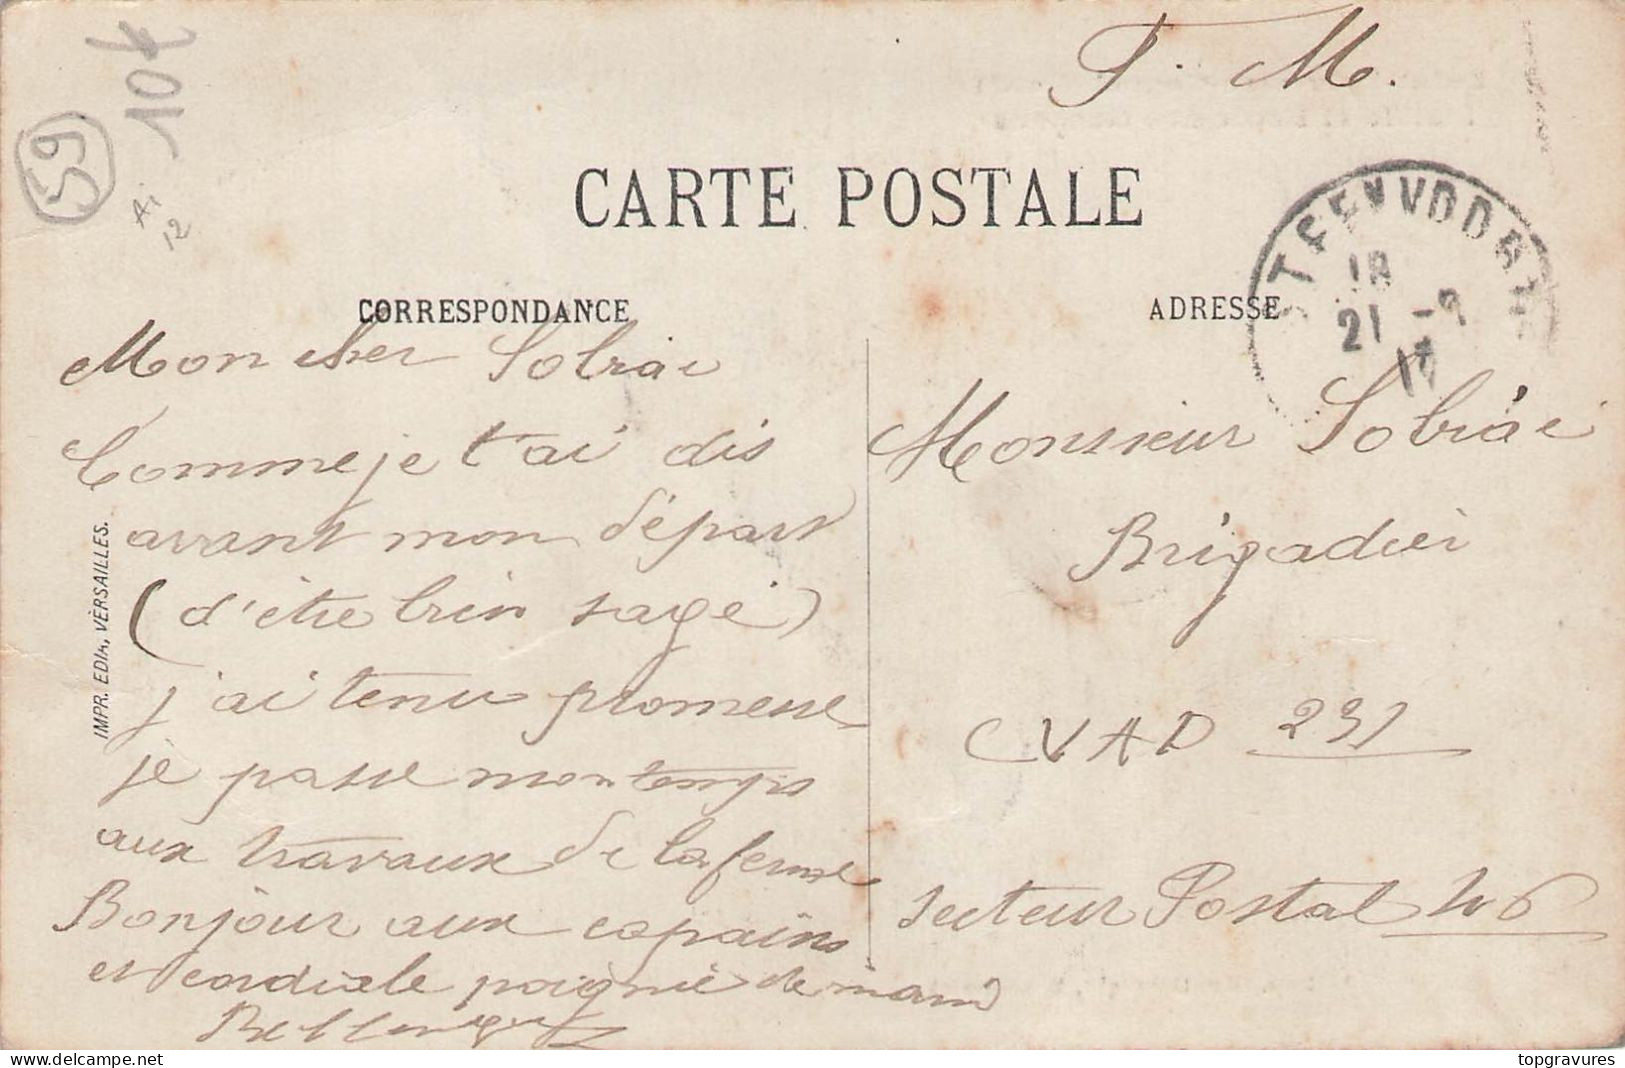 F. M.
59
10€
Ai
12
CARTE POSTALE
18
21 -9
17
CORRESPONDANCE
ADRESSE
Mon cher Sobrai
Comme je t'ai dis
avant mon départ
(d'être bien sage)
j'ai tenu promesse
je passe mon temps
aux travaux de la ferme
Bonjour aux copains
et cordiale poignée de main
Monsieur Sobrai
Brigadier
CVAD 231
Secteur Postal 46
IMPR. EDIA, VERSAILLES.
topgravures